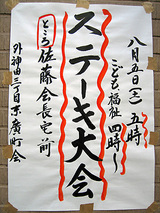 八月五日(土)五時
こども福祉 四時〜
ステーキ大会
ところ 佐藤会長宅前
外神田三丁目末廣町会